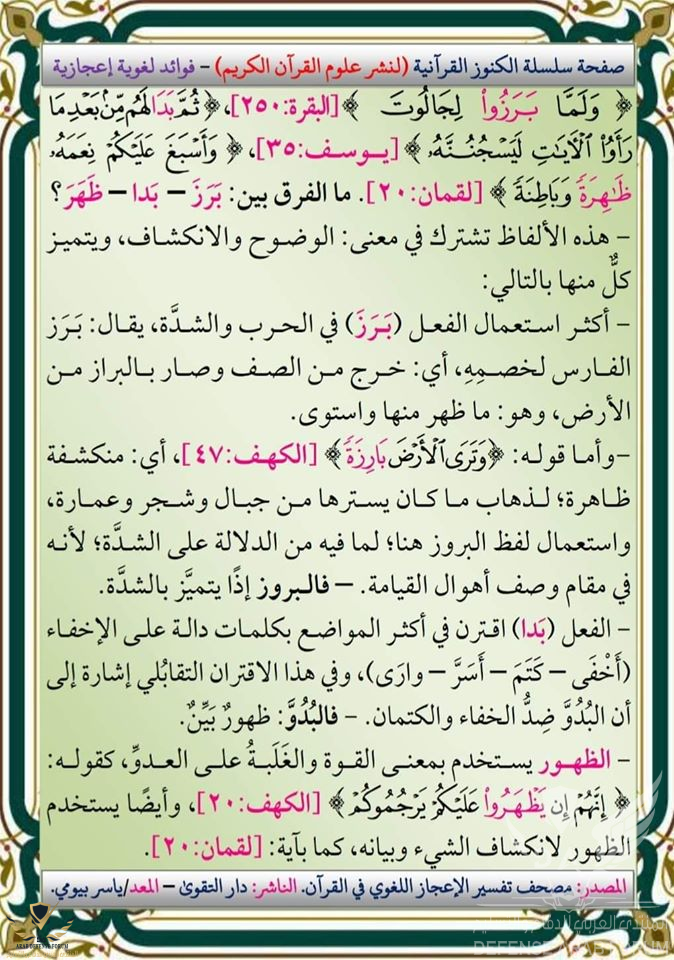 صفحة سلسلة الكنوز القرآنية (لنشر علوم القرآن الكريم) – فوائد لغوية إعجازية
﴿ وَلَمَّا بَرَزُواْ لِجَالُوتَ ﴾[البقرة:٢٥٠]، ﴿ ثُمَّ بَدَا لَهُم مِّنۢ بَعۡدِ مَا
رَأَوُاْ ٱلۡأٓيَٰتِ لَيَسۡجُنُنَّهُۥ ﴾ [يوسف:٣٥]، ﴿ وَأَسۡبَغَ عَلَيۡكُمۡ نِعَمَهُۥ
ظَٰهِرَةٗ وَبَاطِنَةٗ ﴾ [لقمان:٢٠]. ما الفرق بين: بَرَزَ – بَدا – ظَهَرَ ؟
– هذه الألفاظ تشترك في معنى: الوضوح والانكشاف، ويتميز
كلٌّ منها بالتالي:
– أكثر استعمال الفعل (بَرَزَ) في الحرب والشدَّة، يقال: بَرَز
الفارس لخصمِهِ، أي: خرج من الصف وصار بالبراز من
الأرض، وهو: ما ظهر منها واستوى.
–وأما قوله: ﴿وَتَرَى ٱلۡأَرۡضَ بَارِزَةٗ﴾ [الكهف:٤٧]، أي: منكشفة
ظاهرة؛ لذهاب ما كان يسترها من جبال وشجر وعمارة،
واستعمال لفظ البروز هنا؛ لما فيه من الدلالة على الشدَّة؛ لأنه
في مقام وصف أهوال القيامة. – فالبروز إذًا يتميَّز بالشدَّة.
– الفعل (بَدا) اقترن في أكثر المواضع بكلمات دالة على الإخفاء
(أَخْفَى – كَتَمَ – أَسَرَّ – وارَى)، وفي هذا الاقتران التقابُلي إشارة إلى
أن البُدُوَّ ضِدُّ الخفاء والكتمان. – فالبُدُوَّ: ظهورٌ بَيِّنٌ.
– الظهور يستخدم بمعنى القوة والغَلَبةُ على العدوِّ، كقوله:
﴿ إِنَّهُمۡ إِن يَظۡهَرُواْ عَلَيۡكُمۡ يَرۡجُمُوكُمۡ ﴾ [الكهف:٢٠]، وأيضًا يستخدم
الظهور لانكشاف الشيء وبيانه، كما بآية: [لقمان:٢٠].
المصدر: مصحف تفسير الإعجاز اللغوي في القرآن. الناشر: دار التقوىٰ – المعد/ياسر بيومي.
ARAB DEFENSE FORUM